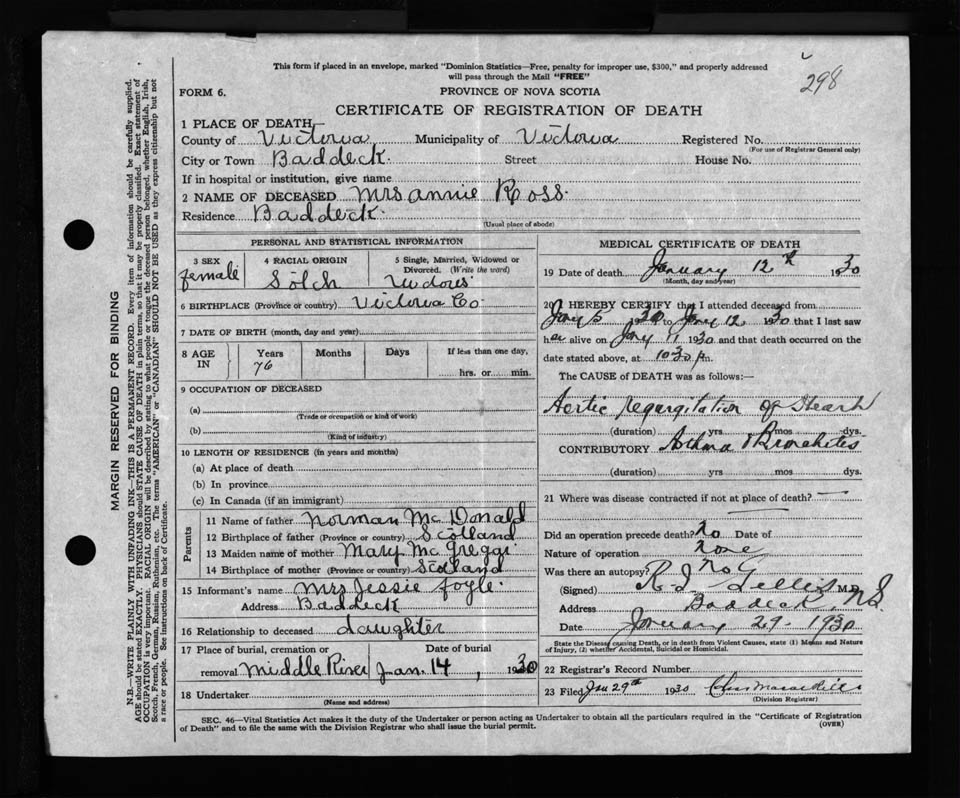 298
This form if placed in an envelope, marked "Dominion Statistics—Free, penalty for improper use, $300," and properly addressed
will pass through the Mail "FREE"
FORM 6.
PROVINCE OF NOVA SCOTIA
CERTIFICATE OF REGISTRATION OF DEATH
1 PLACE OF DEATH—
County of Victoria Municipality of Victoria Registered No.
(For use of Registrar General only)
City or Town Baddeck. Street House No.
If in hospital or institution, give name
2 NAME OF DECEASED Mrs Annie Ross.
Residence Baddeck.
(Usual place of abode)
PERSONAL AND STATISTICAL INFORMATION
3 SEX
female
4 RACIAL ORIGIN
Sotch
5 Single, Married, Widowed or
Divorced. (Write the word)
6 BIRTHPLACE (Province or country) Victoria Co.
7 DATE OF BIRTH (month, day and year)
8 AGE IN
Years Months Days If less than one day,
76
hrs. or min.
9 OCCUPATION OF DECEASED
(a)
(Trade or occupation or kind of work)
(b)
(Kind of industry)
10 LENGTH OF RESIDENCE (in years and months)
(a) At place of death
(b) In province
(c) In Canada (if an immigrant)
Parents
11 Name of father Norman Mc Donald
12 Birthplace of father (Province or country) Scotland
13 Maiden name of mother Mary Mc
14 Birthplace of mother (Province or country) Scotland
15 Informant's name Mrs Jessie Fogle.
Address Baddeck
16 Relationship to deceased daughter
17 Place of burial, cremation or Date of burial
removal Middle River Jan. 14, 1930
18 Undertaker
(Name and address)
MEDICAL CERTIFICATE OF DEATH
19 Date of death January 12th 1930
(Month, day and year)
20 I HEREBY CERTIFY that I attended deceased from
Jany 5 1930 to Jany 12 1930 that I last saw
her alive on Jany 11 1930 and that death occurred on the
date stated above, at 10 30 p.m.
The CAUSE of DEATH was as follows:—
Aortic regurgitation of Heart
(duration) yrs mos dys.
CONTRIBUTORY Asthma & Bronchitis
(duration) yrs mos dys.
21 Where was disease contracted if not at place of death?
Did an operation precede death? No Date of
Nature of operation None
Was there an autopsy? No
(Signed) Gillis M.D.
Address Baddeck, N.S.
Date January 29. 1930
State the Disease causing Death, or in death from Violent Causes, state (1) Means and Nature
of Injury, (2) whether Accidental, Suicidal or Homicidal.
22 Registrar's Record Number
23 Filed Jan 29th 1930
(Division Registrar)
SEC. 46—Vital Statistics Act makes it the duty of the Undertaker or person acting as Undertaker to obtain all the particulars required in the "Certificate of Registration
of Death" and to file the same with the Division Registrar who shall issue the burial permit.
(OVER)
MARGIN RESERVED FOR BINDING
N.B.—WRITE PLAINLY WITH UNFADING INK—THIS IS A PERMANENT RECORD. Every item of information should be carefully supplied.
AGE should be stated EXACTLY. PHYSICIANS should STATE CAUSE OF DEATH in plain terms, so that it may be properly classified. Exact statement of
OCCUPATION is very important. RACIAL ORIGIN will be described by stating to what people or tongue the deceased person belonged, whether English, Irish,
Scotch, French, German, Russian, Ruthenian, etc. The terms "AMERICAN" or "CANADIAN" SHOULD NOT BE USED as they express citizenship but not
a race or people. See instructions on back of Certificate.